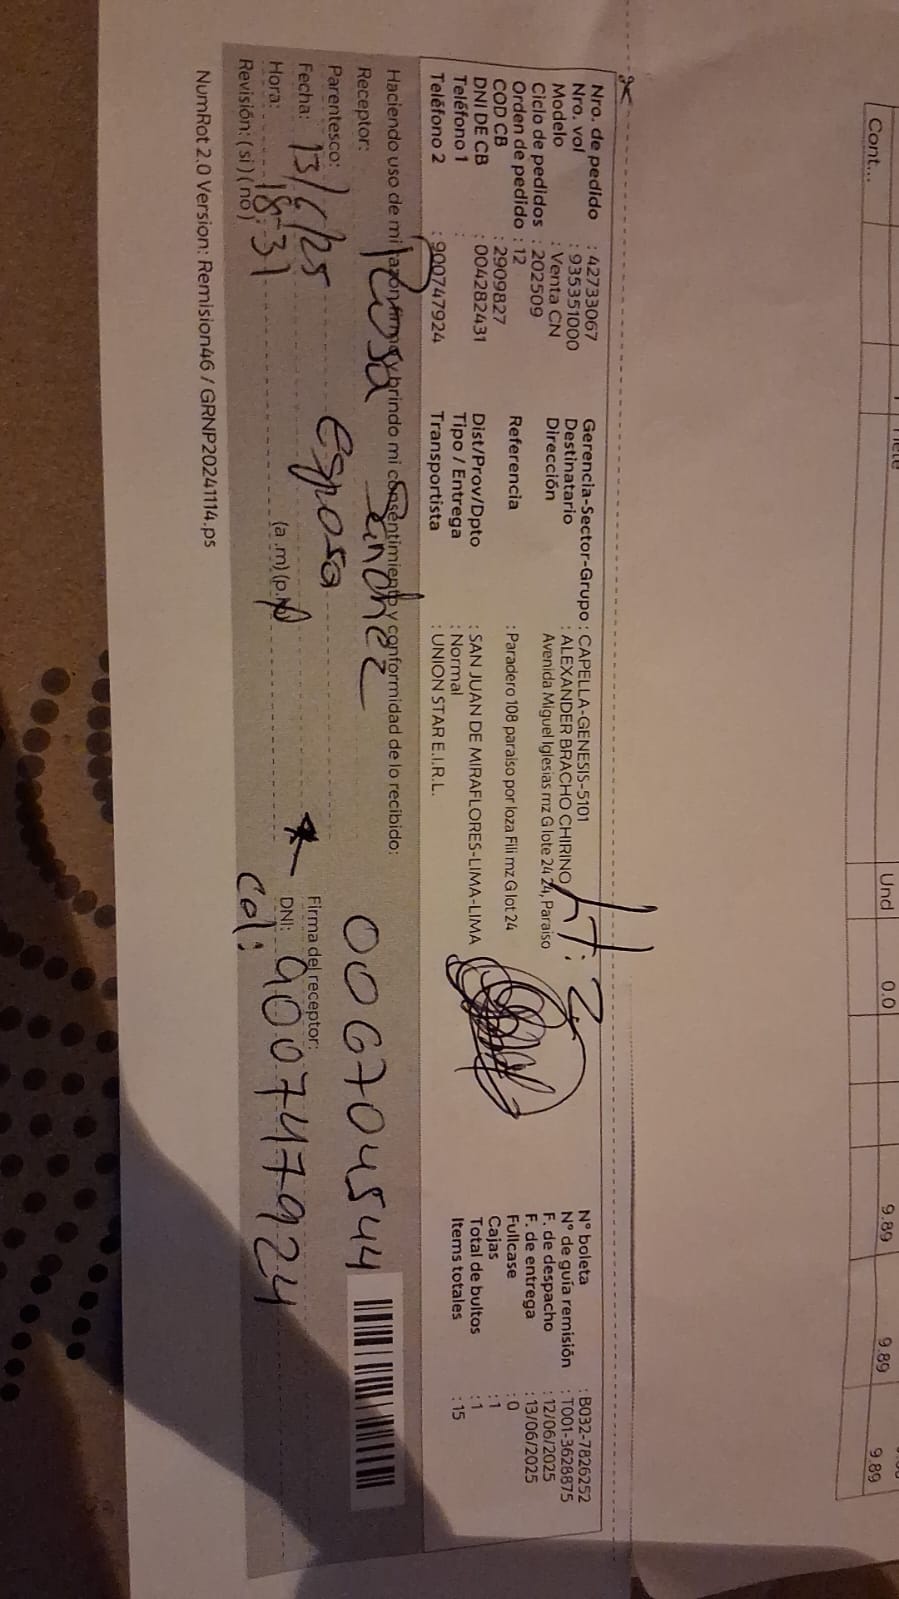 Cont...
Und 0.0 9.89 9.89 9.89
Nro. de pedido : 42733067
Nro. vol : 935351000
Modelo : Venta CN
Ciclo de pedidos : 202509
Orden de pedido : 12
COD CB : 2909827
DNI DE CB : 004282431
Teléfono 1 :
Teléfono 2 : 900747924
Gerencia-Sector-Grupo : CAPELLA-GENESIS-5101
Destinatario : ALEXANDER BRACHO CHIRINO
Dirección Avenida Miguel Iglesias mz G lote 24 24, Paraiso
Referencia : Paradero 108 paraiso por loza Fili mz G lot 24
Dist/Prov/Dpto : SAN JUAN DE MIRAFLORES-LIMA-LIMA
Tipo / Entrega : Normal
Transportista : UNION STAR E.I.R.L.
N° boleta : B032-7826252
N° de guía remisión : T001-3628875
F. de despacho : 12/06/2025
F. de entrega : 13/06/2025
Fullcase : 0
Cajas : 1
Total de bultos : 1
Items totales : 15
Haciendo uso de mi razón firmo y brindo mi consentimiento y conformidad de lo recibido:
Receptor: Rosa Sanchez 006704544
Parentesco: esposa
Fecha: 13/6/25 Firma del receptor:
Hora: 18:31 (a.m) (p.m) DNI: 900747924
Revisión: (si) (no) Cel:
NumRot 2.0 Version: Remision46 / GRNP20241114.ps